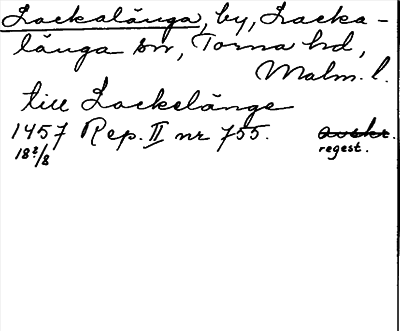 Lackalänga, by, Lacka-
länga sn, Torna hd,
Malm. l.
till Lackelänge
1457 Rep. II nr 755. avskr.
18 2/8 regest.